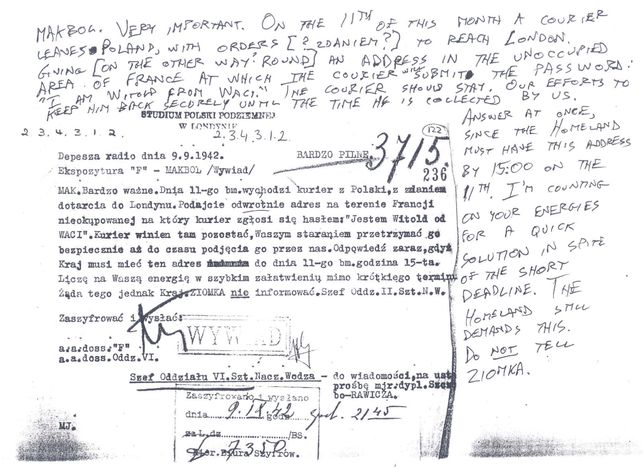 MAKBOL. VERY IMPORTANT. ON THE 11TH OF THIS MONTH A COURIER
LEAVES POLAND, WITH ORDERS [? ZDANIEM?] TO REACH LONDON.
GIVING [ON THE OTHER WAY 'ROUND] AN ADDRESS IN THE UNOCCUPIED
AREA OF FRANCE AT WHICH THE COURIER SUBMITS THE PASSWORD:
"I AM WITOLD FROM WACI." THE COURIER SHOULD STAY. OUR EFFORTS TO
KEEP HIM BACK SECURELY UNTIL THE TIME HE IS COLLECTED BY US.
ANSWER AT ONCE,
SINCE THE HOMELAND
MUST HAVE THIS ADDRESS
BY 15:00 ON THE
11TH. I'M COUNTING
ON YOUR ENERGIES
FOR A QUICK
SOLUTION IN SPITE
OF THE SHORT
DEADLINE. THE
HOMELAND STILL
DEMANDS THIS.
DO NOT TELL
ZIOMKA.
STUDIUM POLSKI PODZIEMNEJ
W LONDYNIE
2 3 4 3 1 2
2.3.4.3.1.2
Depesza radio dnia 9.9.1942. BARDZO PILNE. 3715. 122
Ekspozytura "F" - MAKBOL /Wywiad/ 236
MAK.Bardzo ważne.Dnia 11-go bm.wychodzi kurier z Polski,z zdaniem
dotarcia do Londynu.Podajcie odwrotnie adres na terenie Francji
nieokupowanej na który kurier zgłosi się hasłem:"Jestem Witold od
WACI".Kurier winien tam pozostać,Waszym staraniem przetrzymać go
bezpiecznie aż do czasu podjęcia go przez nas.Odpowiedź zaraz,gdyż
Kraj musi mieć ten adres do dnia 11-go bm.godzina 15-ta.
Liczę na Waszą energię w szybkim załatwieniu mimo krótkiego terminu
Żąda tego jednak Kraj.ZIOMKA nie informować.Szef Oddz.II.Szt.N.W.
Zaszyfrować i wysłać:
WYWIAD
a.a.doss."F"
a.a.doss.Oddz.VI.
Szef Oddziału VI.Szt.Nacz.Wodza - do wiadomości,na ust
prośbę mjr.dypl.
bo-RAWICZA.
Zaszyfrowano i wysłano
dnia 9.IX.42 godz. 2145
za L.dz. /BS.
7350
Kier.Biura Szyfrów.
MJ.